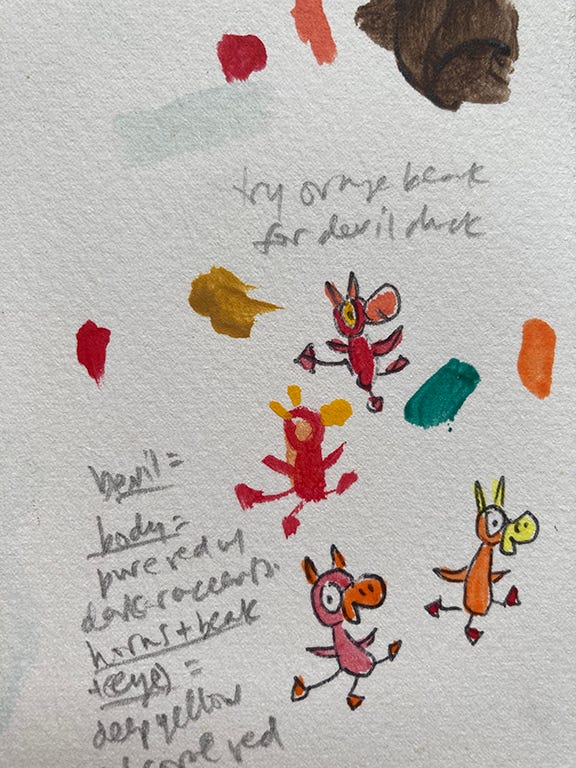 try orange beak
for devil duck
Devil =
body =
pure red w/
dark accents.
horns + beak
+ (eye) =
deep yellow
red